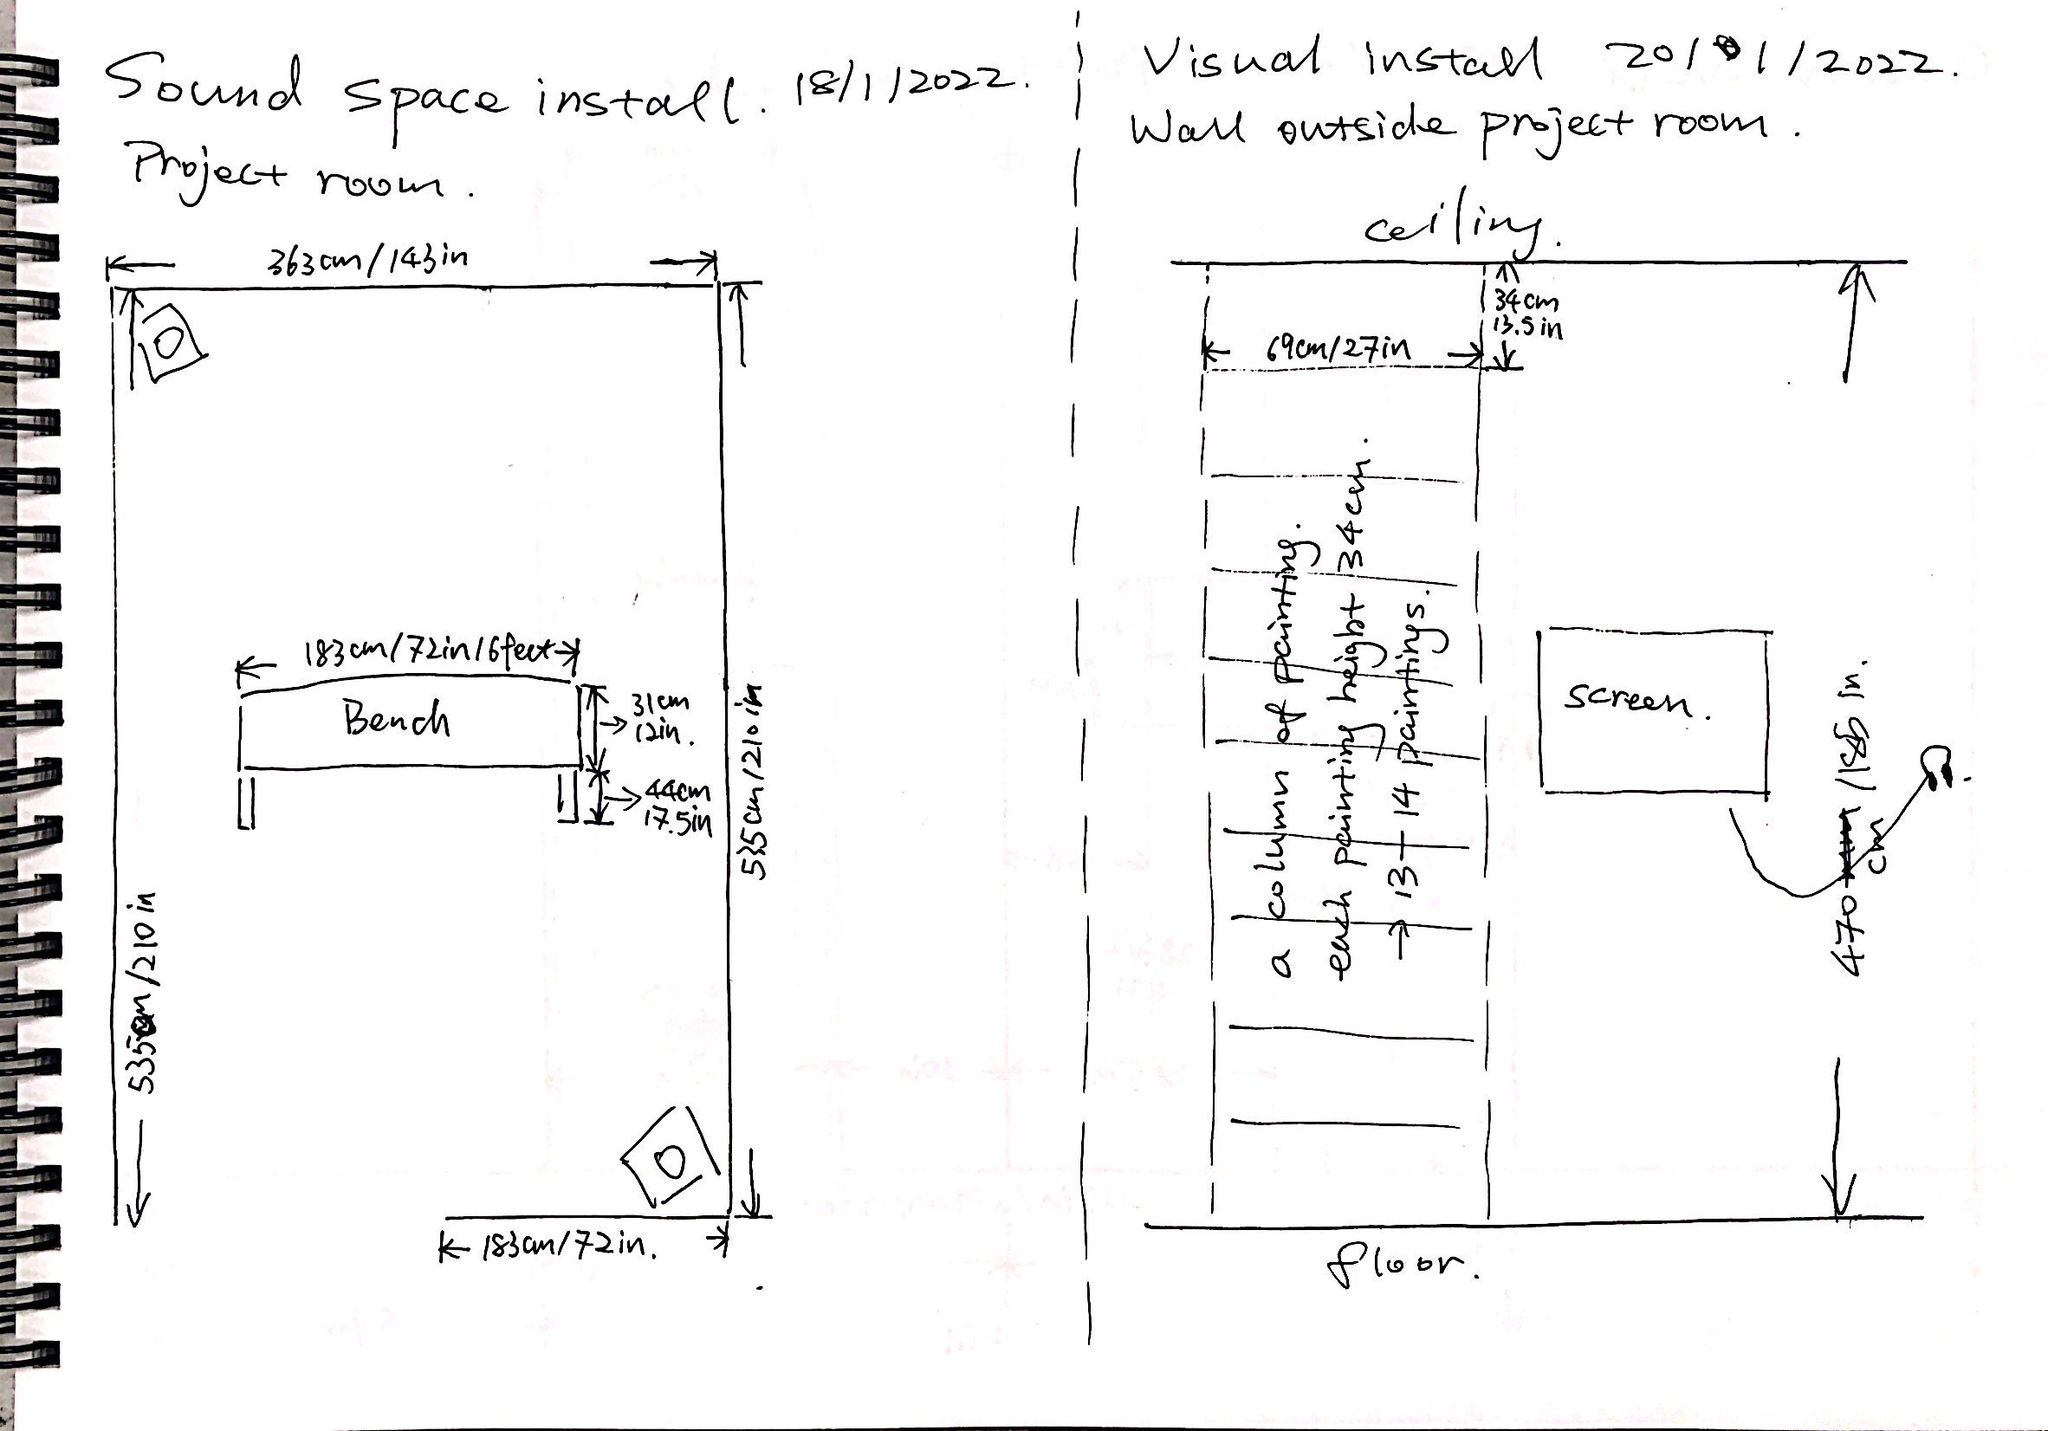 Sound space install. 18/1/2022.
Project room.
363cm/143in
183cm/72in/6feet
Bench
31cm
12in.
44cm
17.5in
535cm/210in
535cm/210in
183cm/72in.
Visual install 20/1/2022.
Wall outside project room.
ceiling.
34cm
13.5in
69cm/27in
a column of painting.
each painting height 34cm.
→ 13-14 paintings.
screen.
470cm/185in.
floor.